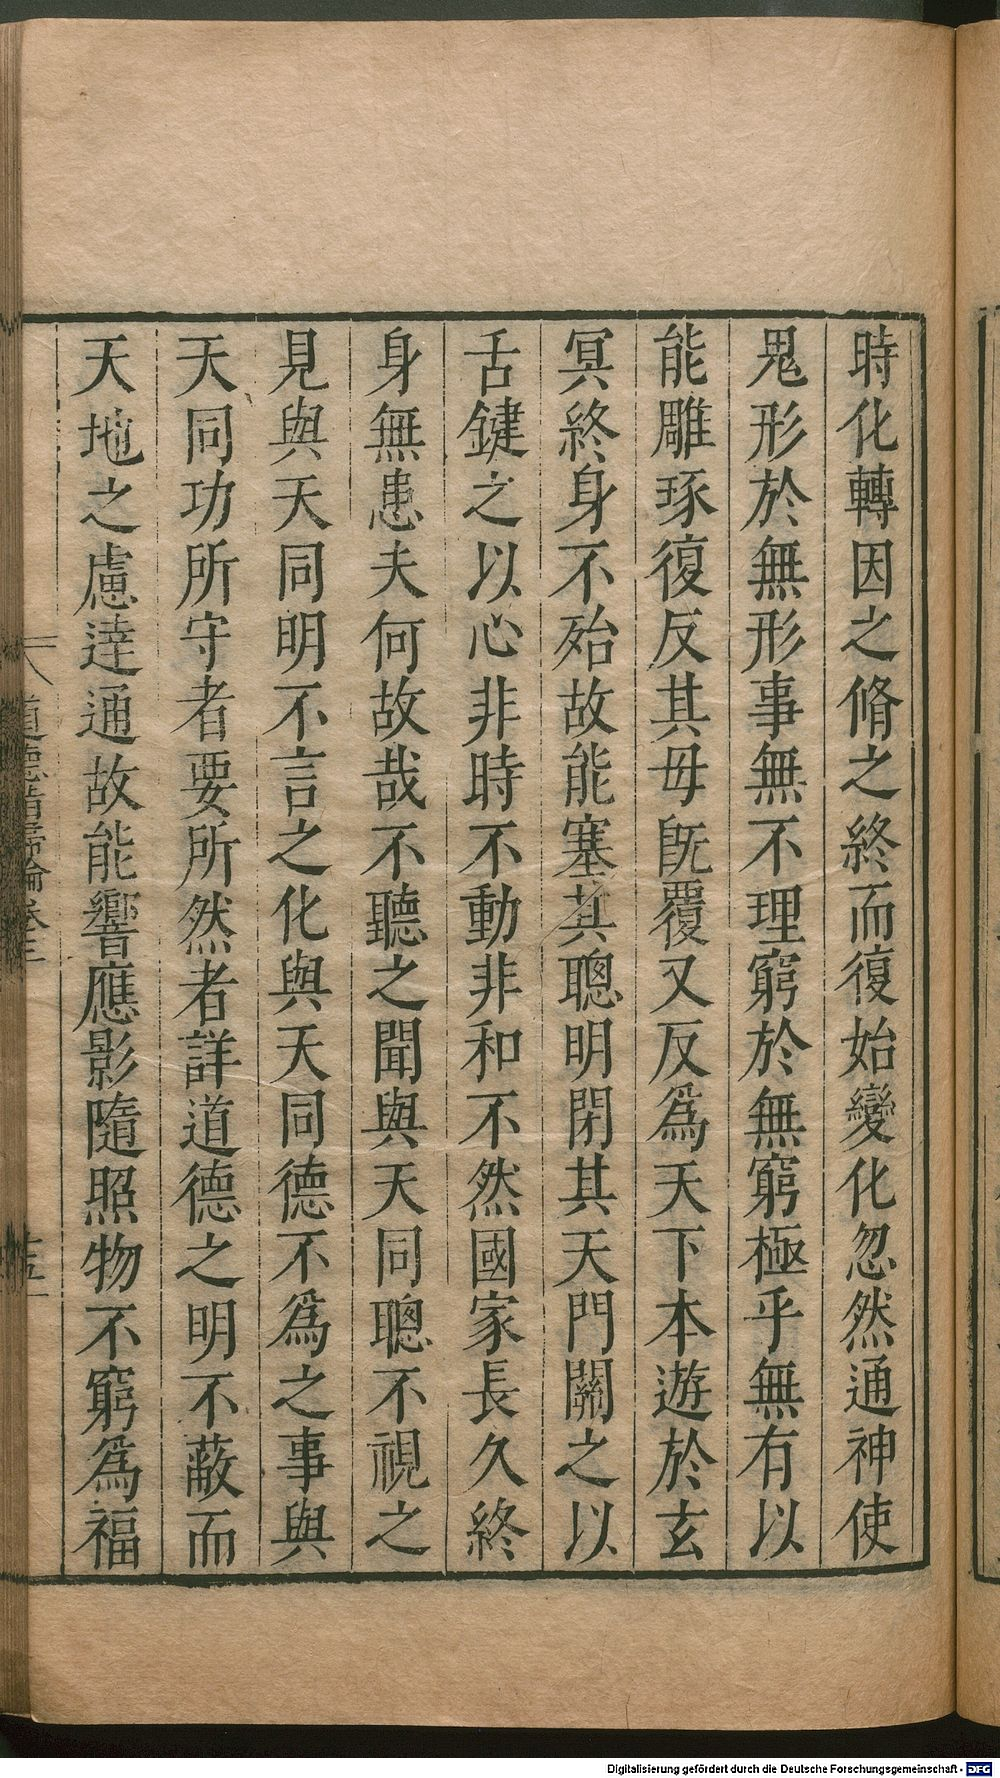 時化轉因之脩之終而復始變化忽然通神使
鬼形於無形事無不理窮於無窮極乎無有以
能雕琢復反其母旣覆又反爲天下本遊於玄
冥終身不殆故能塞其聰明閉其天門關之以
舌鍵之以心非時不動非和不然國家長久終
身無患夫何故哉不聽之聞與天同聰不視之
見與天同明不言之化與天同德不爲之事與
天同功所守者要所然者詳道德之明不蔽而
天地之慮達通故能響應影隨照物不窮爲福
道德指歸論卷三
Digitalisierung gefördert durch die Deutsche Forschungsgemeinschaft - DFG